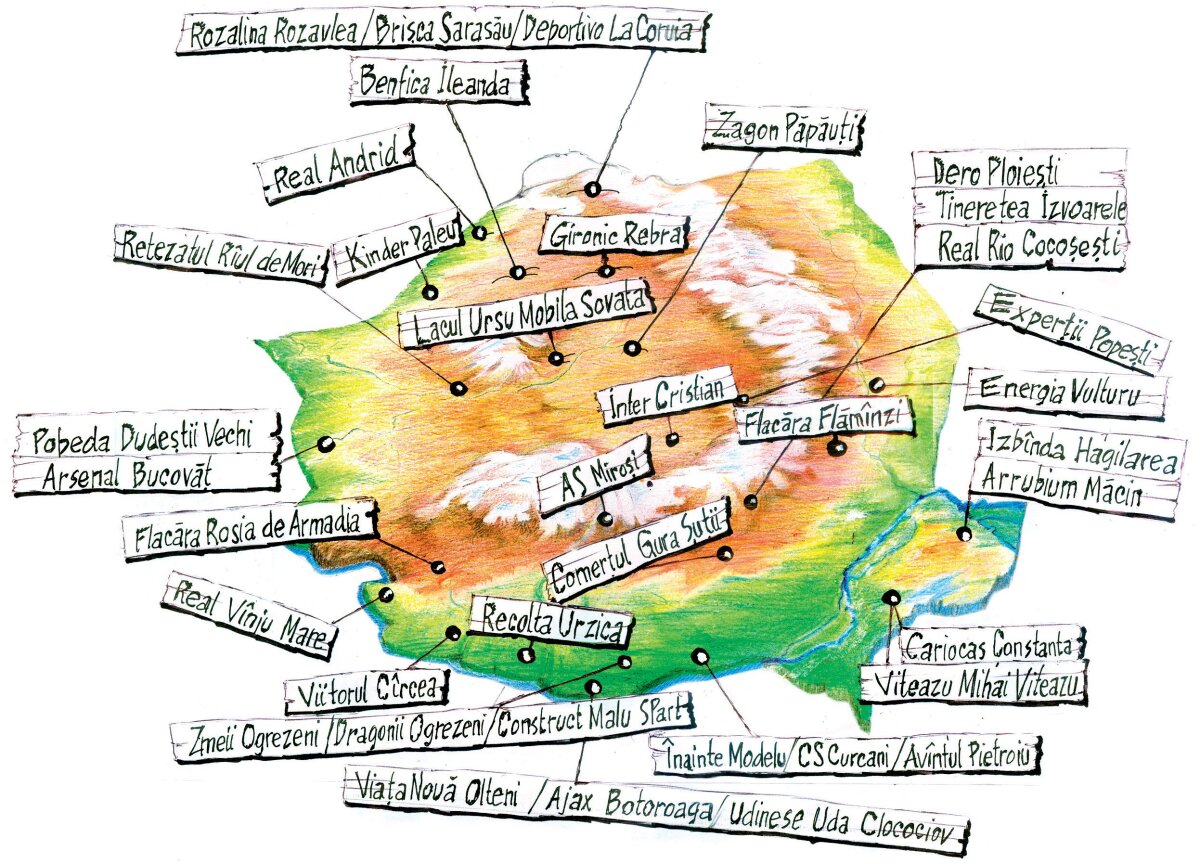 Rozalina Rozavlea/Brișca Sarasău/Deportivo La Coruia
Benfica Ileanda
Zagon Păpăuți
Real Andrid
Dero Ploiești
Tineretea Izvoarele
Real Rio Cocoșești
Retezatul Rîul de Mori
Kinder Paleu
Gironic Rebra
Lacul Ursu Mobila Sovata
Experții Popești
Inter Cristian
Energia Vulturu
Flacăra Flămînzi
Pobeda Dudeștii Vechi
Arsenal Bucovăț
Izbînda Hagilarea
Arrubium Măcin
AS Miroși
Flacăra Roșia de Armadia
Comertul Gura Șuții
Real Vînju Mare
Recolta Urzica
Cariocaș Constanta
Viteazu Mihai Viteazu
Viitorul Cîrcea
Zmeii Ogrezeni/Dragonii Ogrezeni/Construct Malu Spart
Înainte Modelu/CS Curcani/Avîntul Pietroiu
Viața Nouă Olteni /Ajax Botoroaga/Udinese Uda Clocociov